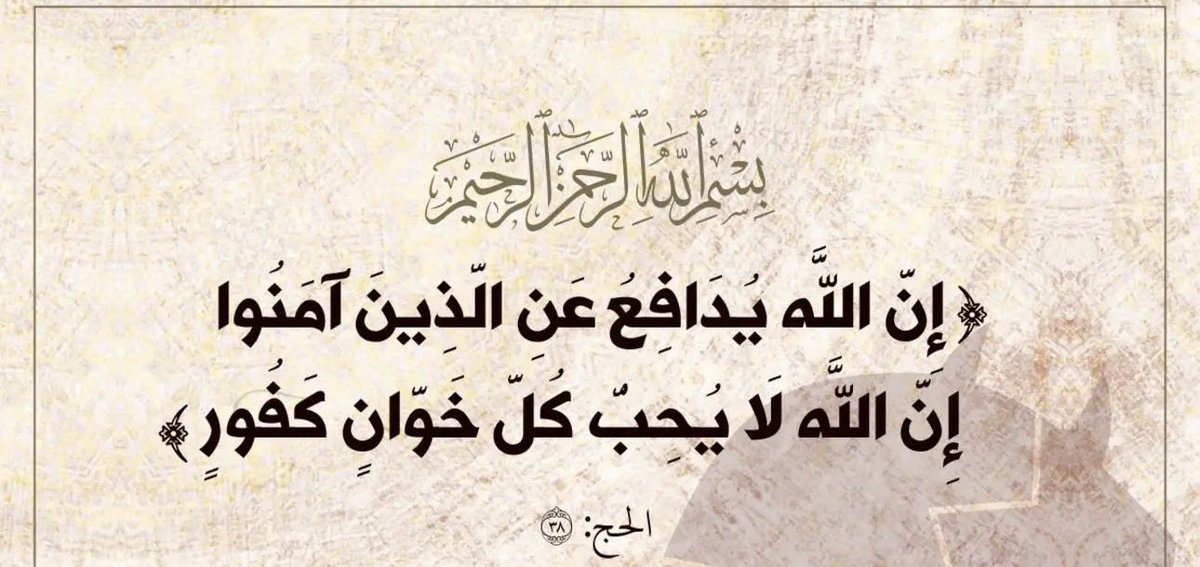 بِسْمِ ٱللَّهِ ٱلرَّحْمَٰنِ ٱلرَّحِيمِ
﴿ إِنّ اللَّه يُدَافِعُ عَنِ الّذِينَ آمَنُوا
إِنّ اللَّه لَا يُحِبُّ كُلّ خَوّانٍ كَفُورٍ ﴾
الحج: ٣٨